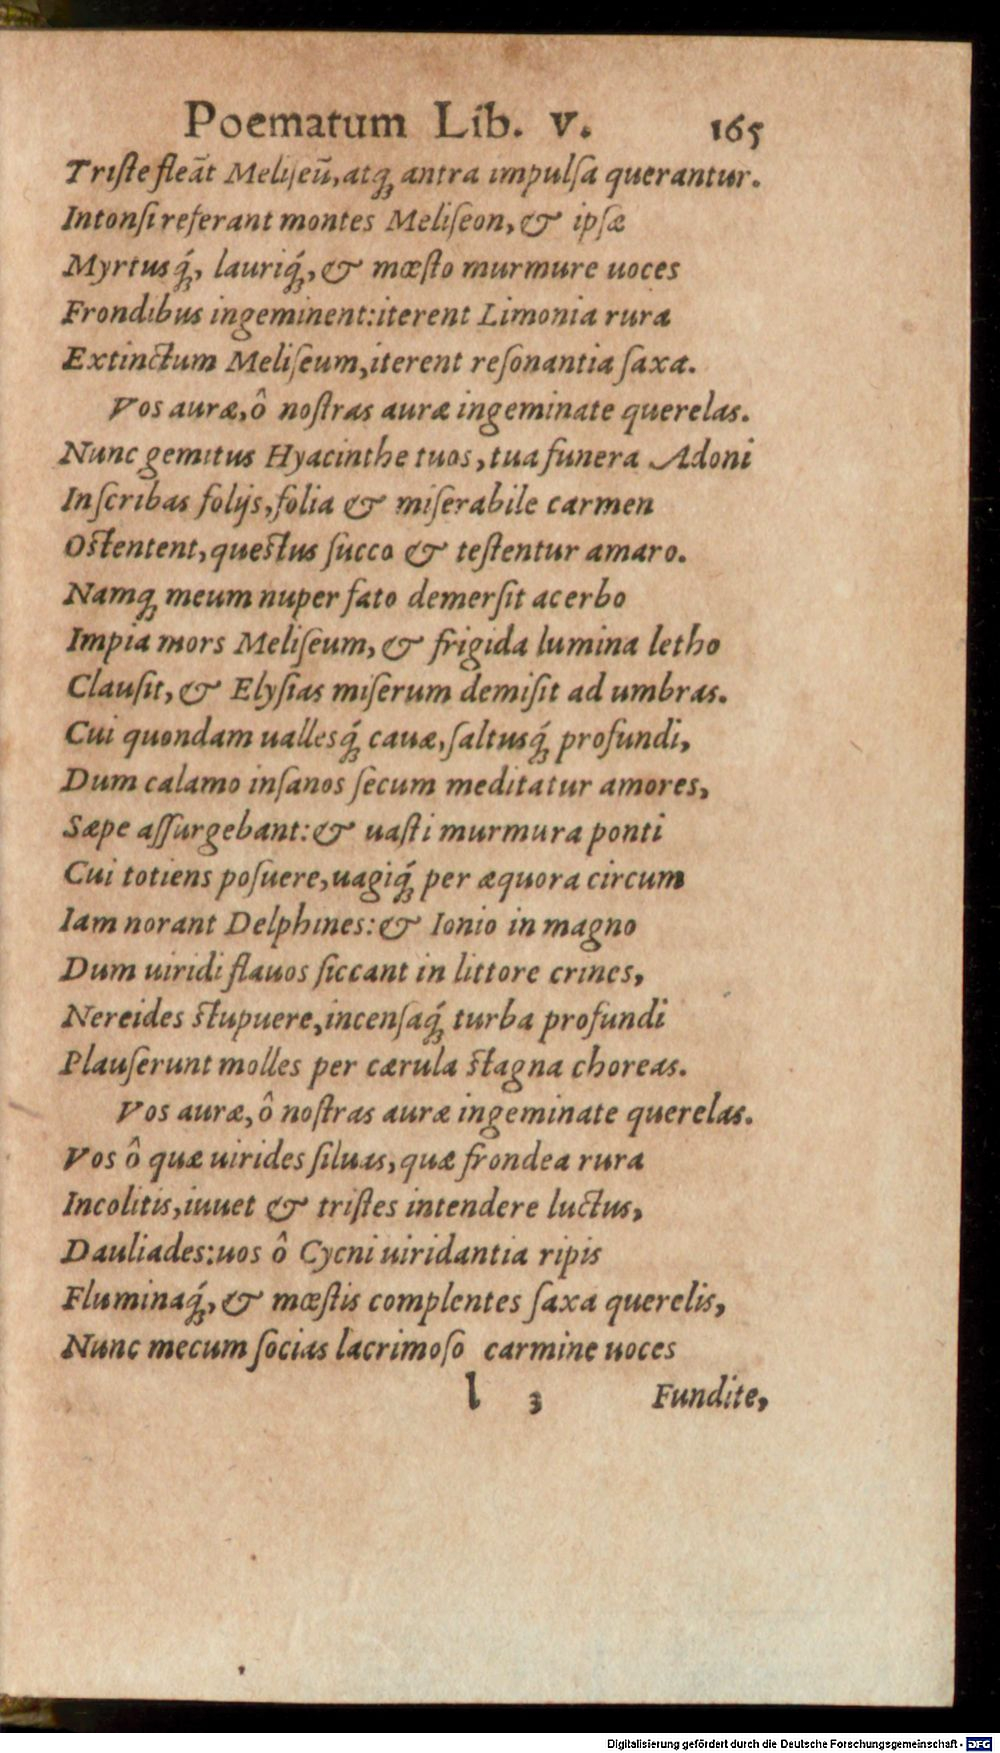 Poematum Lib. V. 165
Triste fleāt Meliseū, atq; antra impulsa querantur.
Intonsi referant montes Meliseon, & ipsæ
Myrtusq́;, lauriq́;, & mœsto murmure uoces
Frondibus ingeminent: iterent Limonia rura
Extinctum Meliseum, iterent resonantia saxa.
Vos auræ, ô nostras auræ ingeminate querelas.
Nunc gemitus Hyacinthe tuos, tua funera Adoni
Inscribas folijs, folia & miserabile carmen
Ostentent, questus succo & testentur amaro.
Namq; meum nuper fato demersit acerbo
Impia mors Meliseum, & frigida lumina letho
Clausit, & Elysias miserum demisit ad umbras.
Cui quondam uallesq́; cauæ, saltusq́; profundi,
Dum calamo insanos secum meditatur amores,
Sæpe assurgebant: & uasti murmura ponti
Cui totiens posuere, uagiq́; per æquora circum
Iam norant Delphines: & Ionio in magno
Dum uiridi flauos siccant in littore crines,
Nereides stupuere, incensaq́; turba profundi
Plauserunt molles per cærula stagna choreas.
Vos auræ, ô nostras auræ ingeminate querelas.
Vos ô quæ uirides siluas, quæ frondea rura
Incolitis, iuuet & tristes intendere luctus,
Dauliades: uos ô Cycni uiridantia ripis
Fluminaq́;, & mœstis complentes saxa querelis,
Nunc mecum socias lacrimoso carmine uoces
l 3 Fundite,
Digitalisierung gefördert durch die Deutsche Forschungsgemeinschaft - DFG